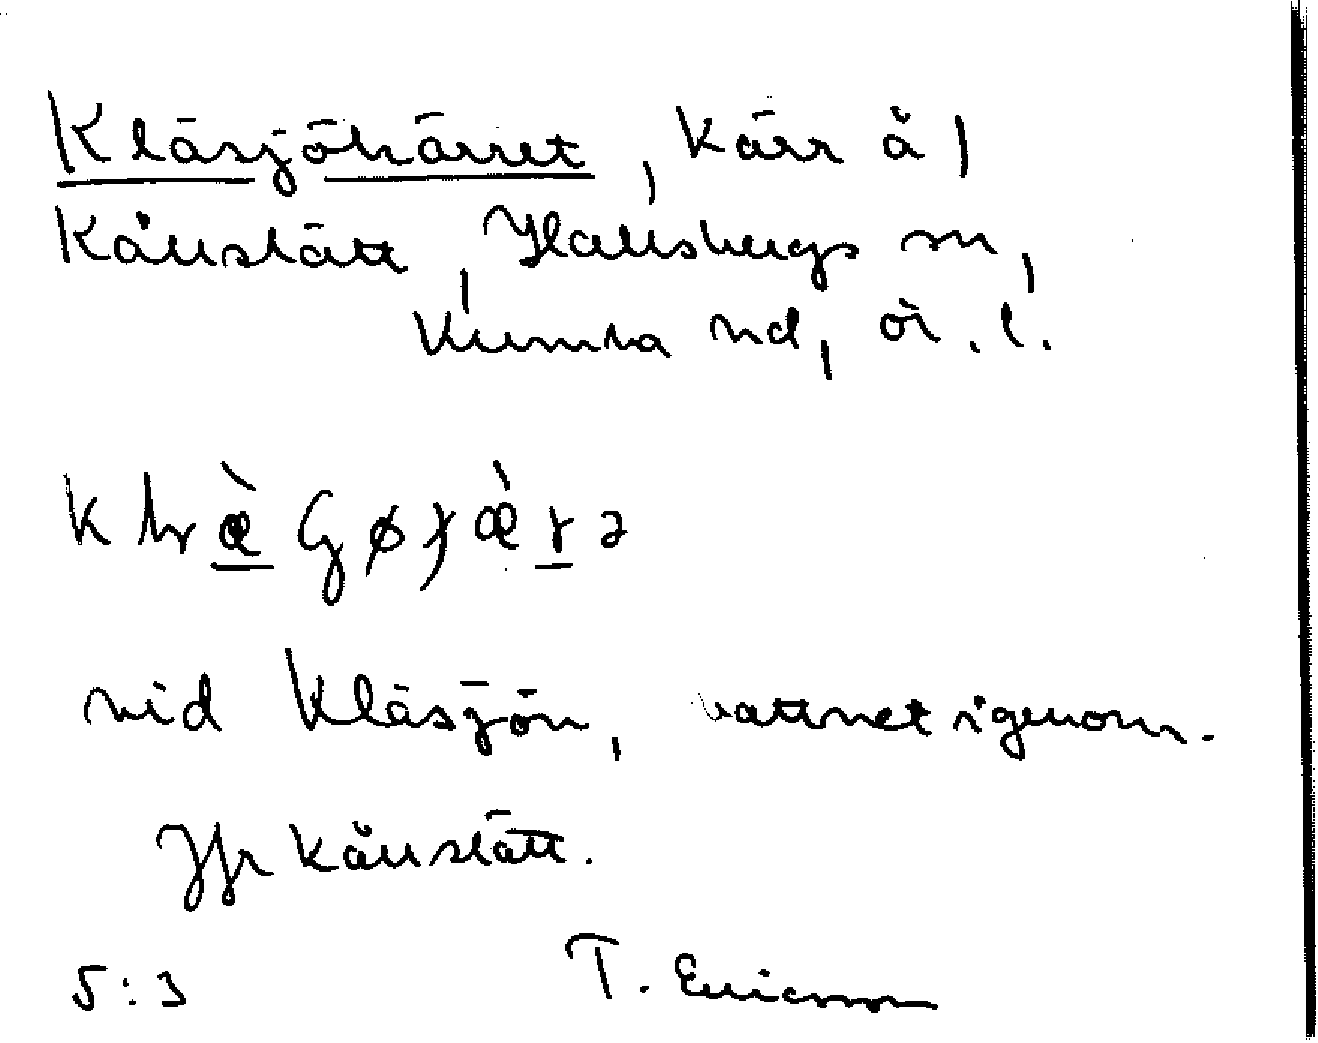 Kläsjökärret, kärr å |
Kånslätt, Hallsbergs sn,
Kumla hd, ör. l.
vid Kläsjön, vattnet igenom.
Jfr Kånslätt.
5:3 T. Ericsson